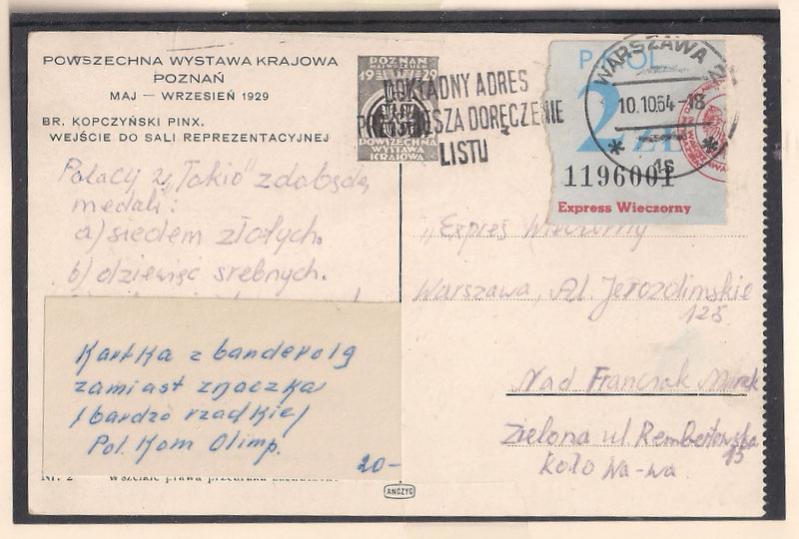 POWSZECHNA WYSTAWA KRAJOWA
POZNAŃ
MAJ — WRZESIEŃ 1929
BR. KOPCZYŃSKI PINX.
WEJŚCIE DO SALI REPREZENTACYJNEJ
POZNAŃ
1929
POWSZECHNA
WYSTAWA
KRAJOWA
DOKŁADNY ADRES
DORĘCZENIE
LISTU
WARSZAWA 2
10.10.64-18
1s
2 ZŁ
1196001
Express Wieczorny
Polacy w „Tokio" zdobędą
medali:
a) siedem złotych.
b) dziewięć srebnych.
Kartka z banderolą
zamiast znaczka
/bardzo rzadkie/
Pol. Kom Olimp.
20-
„Expres Wieczorny
Warszawa, Al. Jerozolimskie
125
Nad Franczak Marek
Zielona ul. Rembertowska
15
koło Wa-wa.
ANCZYC